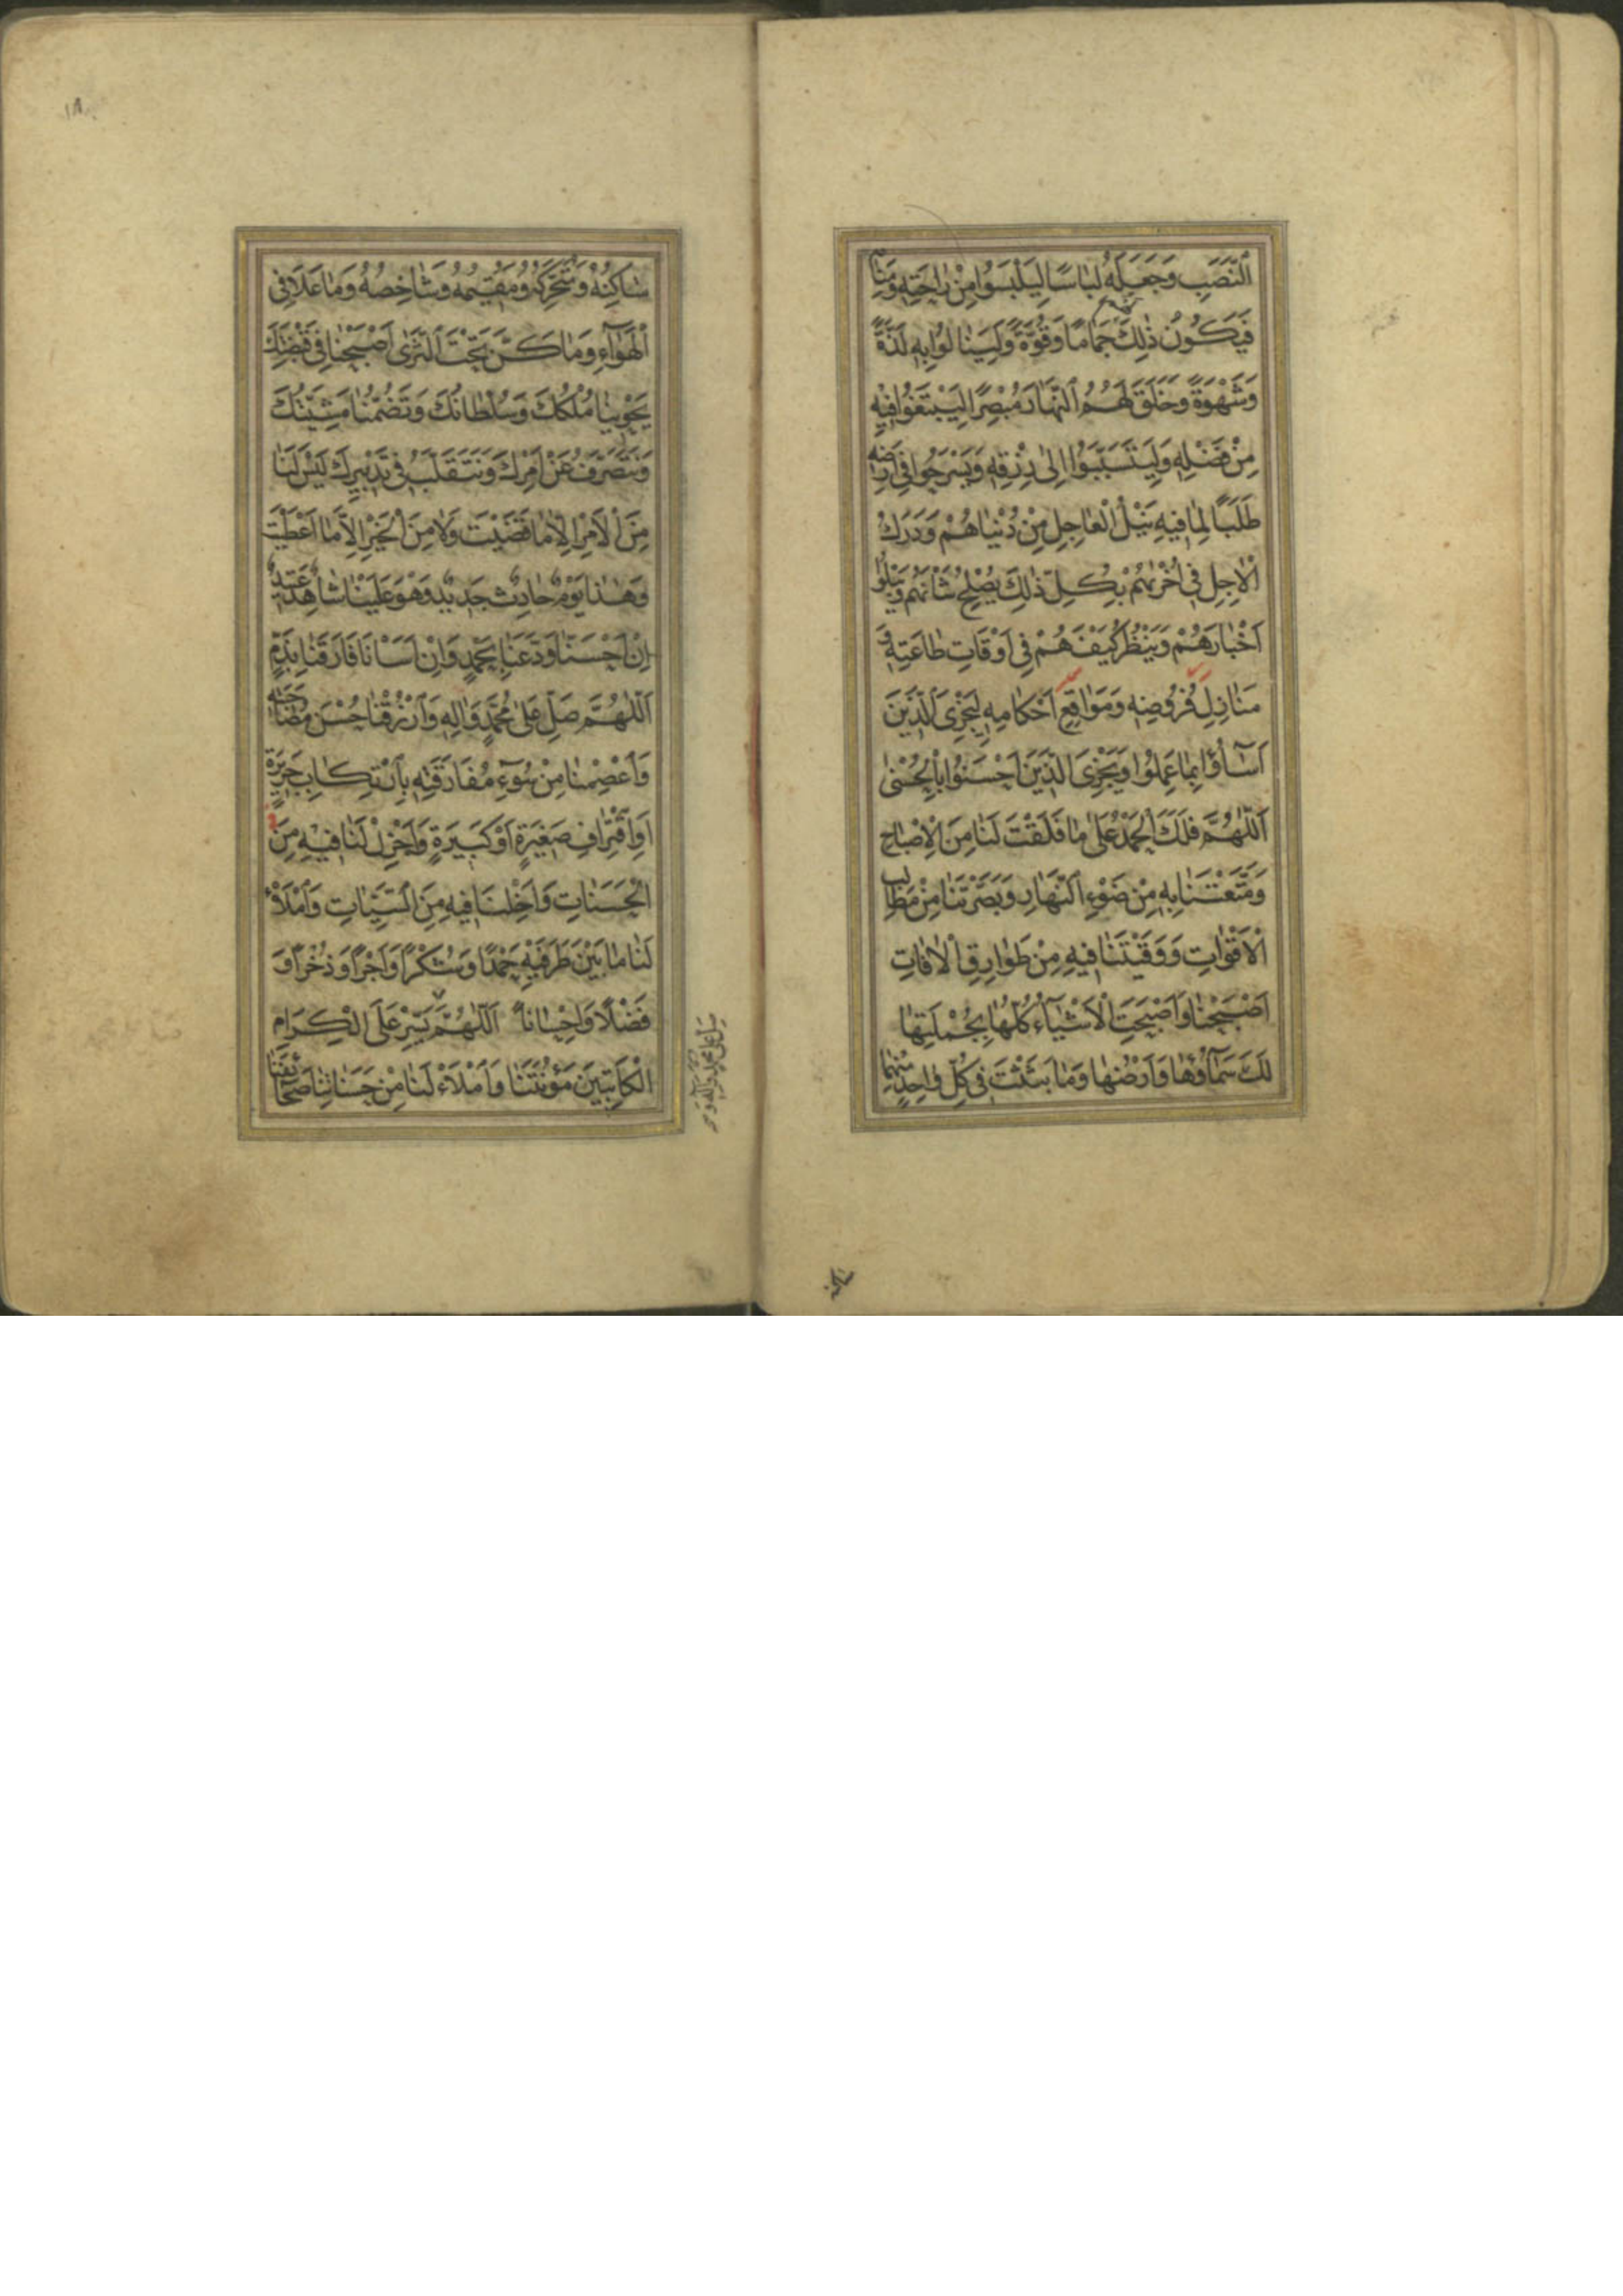 اَلنَّصَبِ وَجَعَلَهُ لِبَاسًا لِيَلْبَسُوا مِنْ رَاحَتِهِ وَمَنَامِهِ
فَيَكُونُ ذٰلِكَ جَمَامًا وَقُوَّةً وَلِيَنَالُوا بِهِ لَذَّةً
وَشَهْوَةً وَخَلَقَ لَهُمُ النَّهَارَ مُبْصِرًا لِيَبْتَغُوا فِيهِ
مِنْ فَضْلِهِ وَلِيَتَسَبَّبُوا اِلىٰ رِزْقِهِ وَيَسْرَحُوا فِي اَرْضِهِ
طَلَبًا لِمَا فِيهِ نَيْلُ الْعَاجِلِ مِنْ دُنْيَاهُمْ وَدَرَكُ
الْاٰجِلِ فِي اُخْرٰيهُمْ بِكُلِّ ذٰلِكَ يُصْلِحُ شَاْنَهُمْ وَيَبْلُوا
اَخْبَارَهُمْ وَيَنْظُرُ كَيْفَ هُمْ فِي اَوْقَاتِ طَاعَتِهِ وَ
مَنَازِلِ فُرُوضِهِ وَمَوَاقِعِ اَحْكَامِهِ لِيَجْزِيَ الَّذِينَ
اَسَآؤُا بِمَا عَمِلُوا وَيَجْزِيَ الَّذِينَ اَحْسَنُوا بِالْحُسْنىٰ
اَللّٰهُمَّ فَلَكَ الْحَمْدُ عَلىٰ مَا فَلَقْتَ لَنَا مِنَ الْاِصْبَاحِ
وَمَتَّعْتَنَا بِهِ مِنْ ضَوْءِ النَّهَارِ وَبَصَّرْتَنَا مِنْ مَطَالِبِ
الْاَقْوَاتِ وَوَقَيْتَنَا فِيهِ مِنْ طَوَارِقِ الْاٰفَاتِ
اَصْبَحْنَا وَاَصْبَحَتِ الْاَشْيَآءُ كُلُّهَا بِجُمْلَتِهَا
لَكَ سَمَآؤُهَا وَاَرْضُهَا وَمَا بَثَثْتَ فِي كُلِّ وَاحِدٍ مِنْهُمَا
ساكنه
١٨
سَاكِنُهُ وَمُتَحَرِّكُهُ وَمُقِيمُهُ وَشَاخِصُهُ وَمَا عَلَا فِي
الْهَوَآءِ وَمَا كَنَّ تَحْتَ الثَّرىٰ اَصْبَحْنَا فِي قَبْضَتِكَ
يَحْوِينَا مُلْكُكَ وَسُلْطَانُكَ وَتَضُمُّنَا مَشِيَّتُكَ
وَنَتَصَرَّفُ عَنْ اَمْرِكَ وَنَتَقَلَّبُ فِي تَدْبِيرِكَ لَيْسَ لَنَا
مِنَ الْاَمْرِ اِلَّا مَا قَضَيْتَ وَلَا مِنَ الْخَيْرِ اِلَّا مَا اَعْطَيْتَ
وَهٰذَا يَوْمٌ حَادِثٌ جَدِيدٌ وَهُوَ عَلَيْنَا شَاهِدٌ عَتِيدٌ
اِنْ اَحْسَنَّا وَدَّعَنَا بِحَمْدٍ وَاِنْ اَسَاْنَا فَارَقَنَا بِذَمٍّ
اَللّٰهُمَّ صَلِّ عَلىٰ مُحَمَّدٍ وَاٰلِهِ وَارْزُقْنَا حُسْنَ مُصَاحَبَتِهِ
وَاعْصِمْنَا مِنْ سُوٓءِ مُفَارَقَتِهِ بِارْتِكَابِ جَرِيرَةٍ
اَوِ اقْتِرَافِ صَغِيرَةٍ اَوْ كَبِيرَةٍ وَاَجْزِلْ لَنَا فِيهِ مِنَ
الْحَسَنَاتِ وَاَخْلِنَا فِيهِ مِنَ السَّيِّئَاتِ وَامْلَاْ
لَنَا مَا بَيْنَ طَرَفَيْهِ حَمْدًا وَشُكْرًا وَاَجْرًا وَذُخْرًا وَ
فَضْلًا وَاِحْسَانًا اَللّٰهُمَّ يَسِّرْ عَلَى الْكِرَامِ
الْكَاتِبِينَ مَؤُنَتَنَا وَامْلَاْ لَنَا مِنْ حَسَنَاتِنَا صَحَائِفَنَا
صل على محمد وآله و